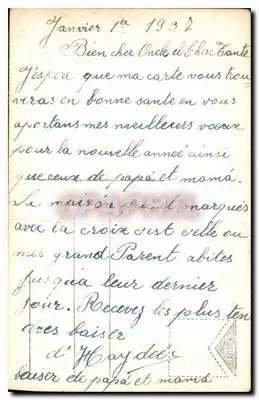 Janvier 1ª 1937
Bien cher Oncle et Chere Tante
J'éspere que ma carte vous trou
veras en bonne sante en vous
aportans mes meilleurs vœux
pour la nouvelle anneé ainsi
que ceux de papá et mamá.
La maisón marqués
avec la croix c'est celle ou
mes grand Parent abites
Jusquia leur dernier
jour. Recevez les plus ten
dres baiser
d'Haydeéx
baiser de papá et mamá